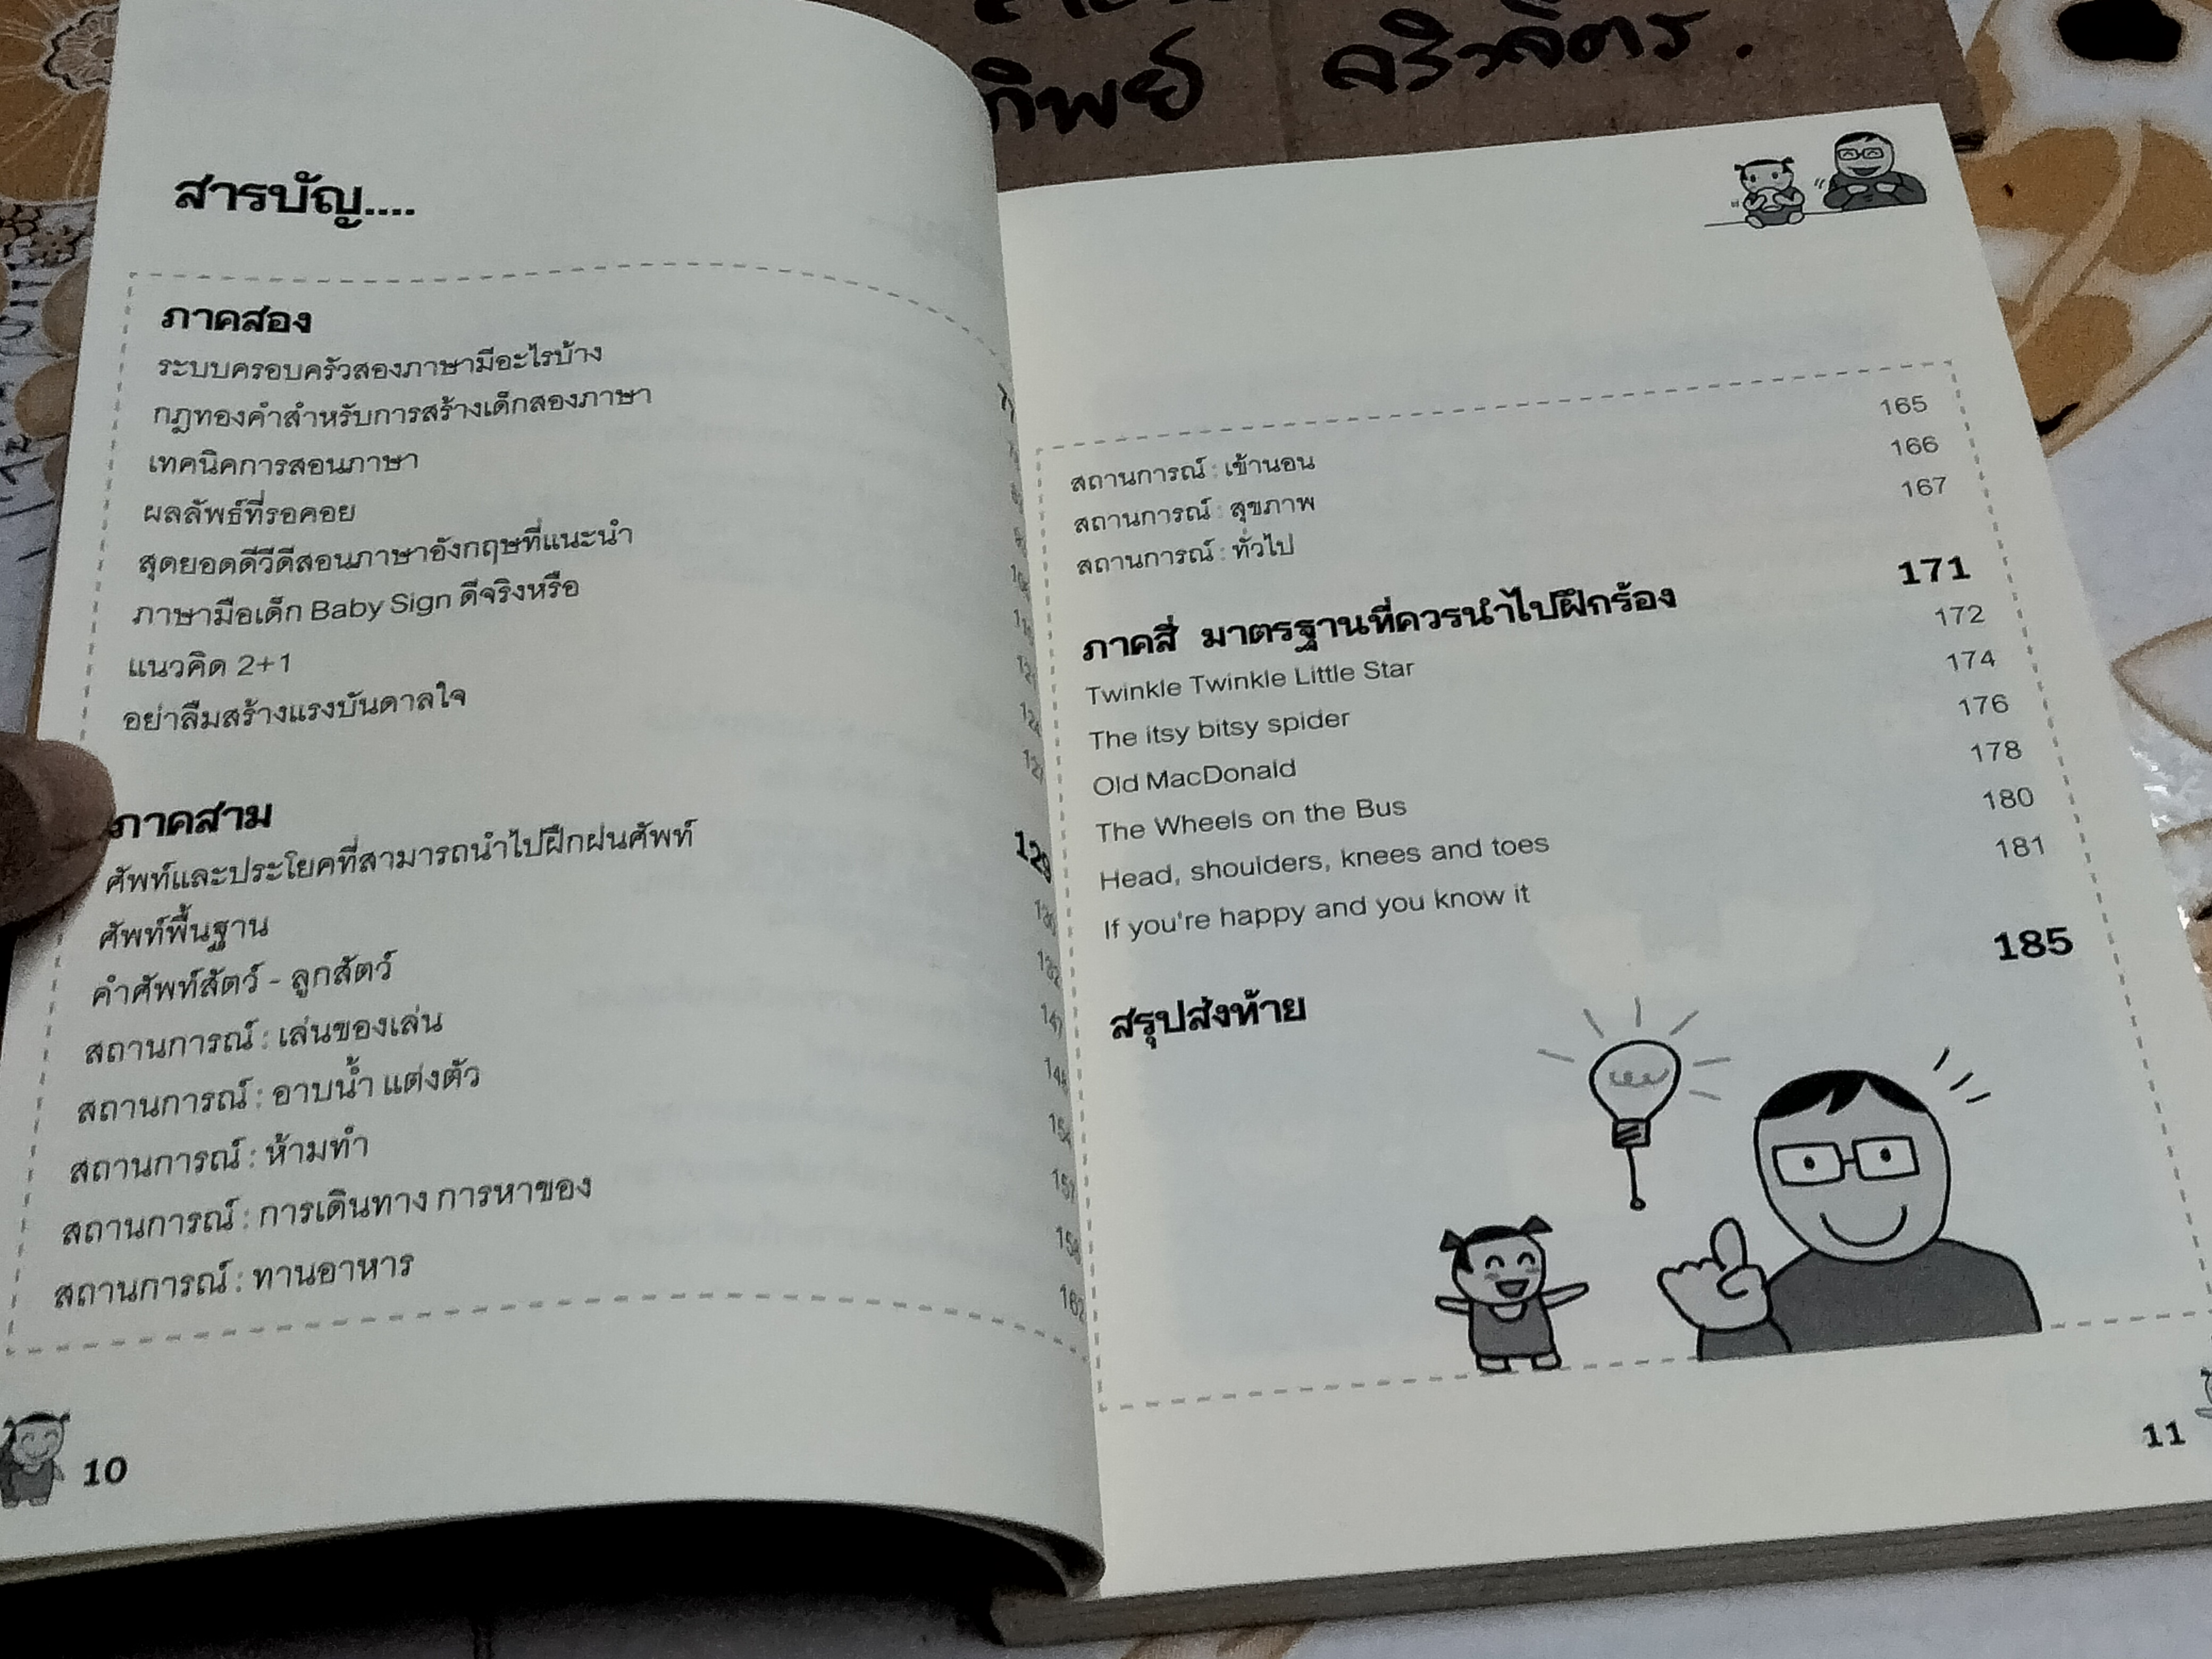 ทิพย์ ศริวจิตร.
สารบัญ....
ภาคสอง
ระบบครอบครัวสองภาษามีอะไรบ้าง
กฎทองคำสำหรับการสร้างเด็กสองภาษา
เทคนิคการสอนภาษา
ผลลัพธ์ที่รอคอย
สุดยอดดีวีดีสอนภาษาอังกฤษที่แนะนำ
ภาษามือเด็ก Baby Sign ดีจริงหรือ
แนวคิด 2+1
อย่าลืมสร้างแรงบันดาลใจ
ภาคสาม 129
ศัพท์และประโยคที่สามารถนำไปฝึกฝนศัพท์
ศัพท์พื้นฐาน
คำศัพท์สัตว์ - ลูกสัตว์
สถานการณ์ : เล่นของเล่น
สถานการณ์ : อาบน้ำ แต่งตัว
สถานการณ์ : ห้ามทำ
สถานการณ์ : การเดินทาง การหาของ
สถานการณ์ : ทานอาหาร 162
10
สถานการณ์ : เข้านอน 165
สถานการณ์ : สุขภาพ 166
สถานการณ์ : ทั่วไป 167
ภาคสี่ มาตรฐานที่ควรนำไปฝึกร้อง 171
Twinkle Twinkle Little Star 172
The itsy bitsy spider 174
Old MacDonald 176
The Wheels on the Bus 178
Head, shoulders, knees and toes 180
If you're happy and you know it 181
สรุปส่งท้าย 185
11